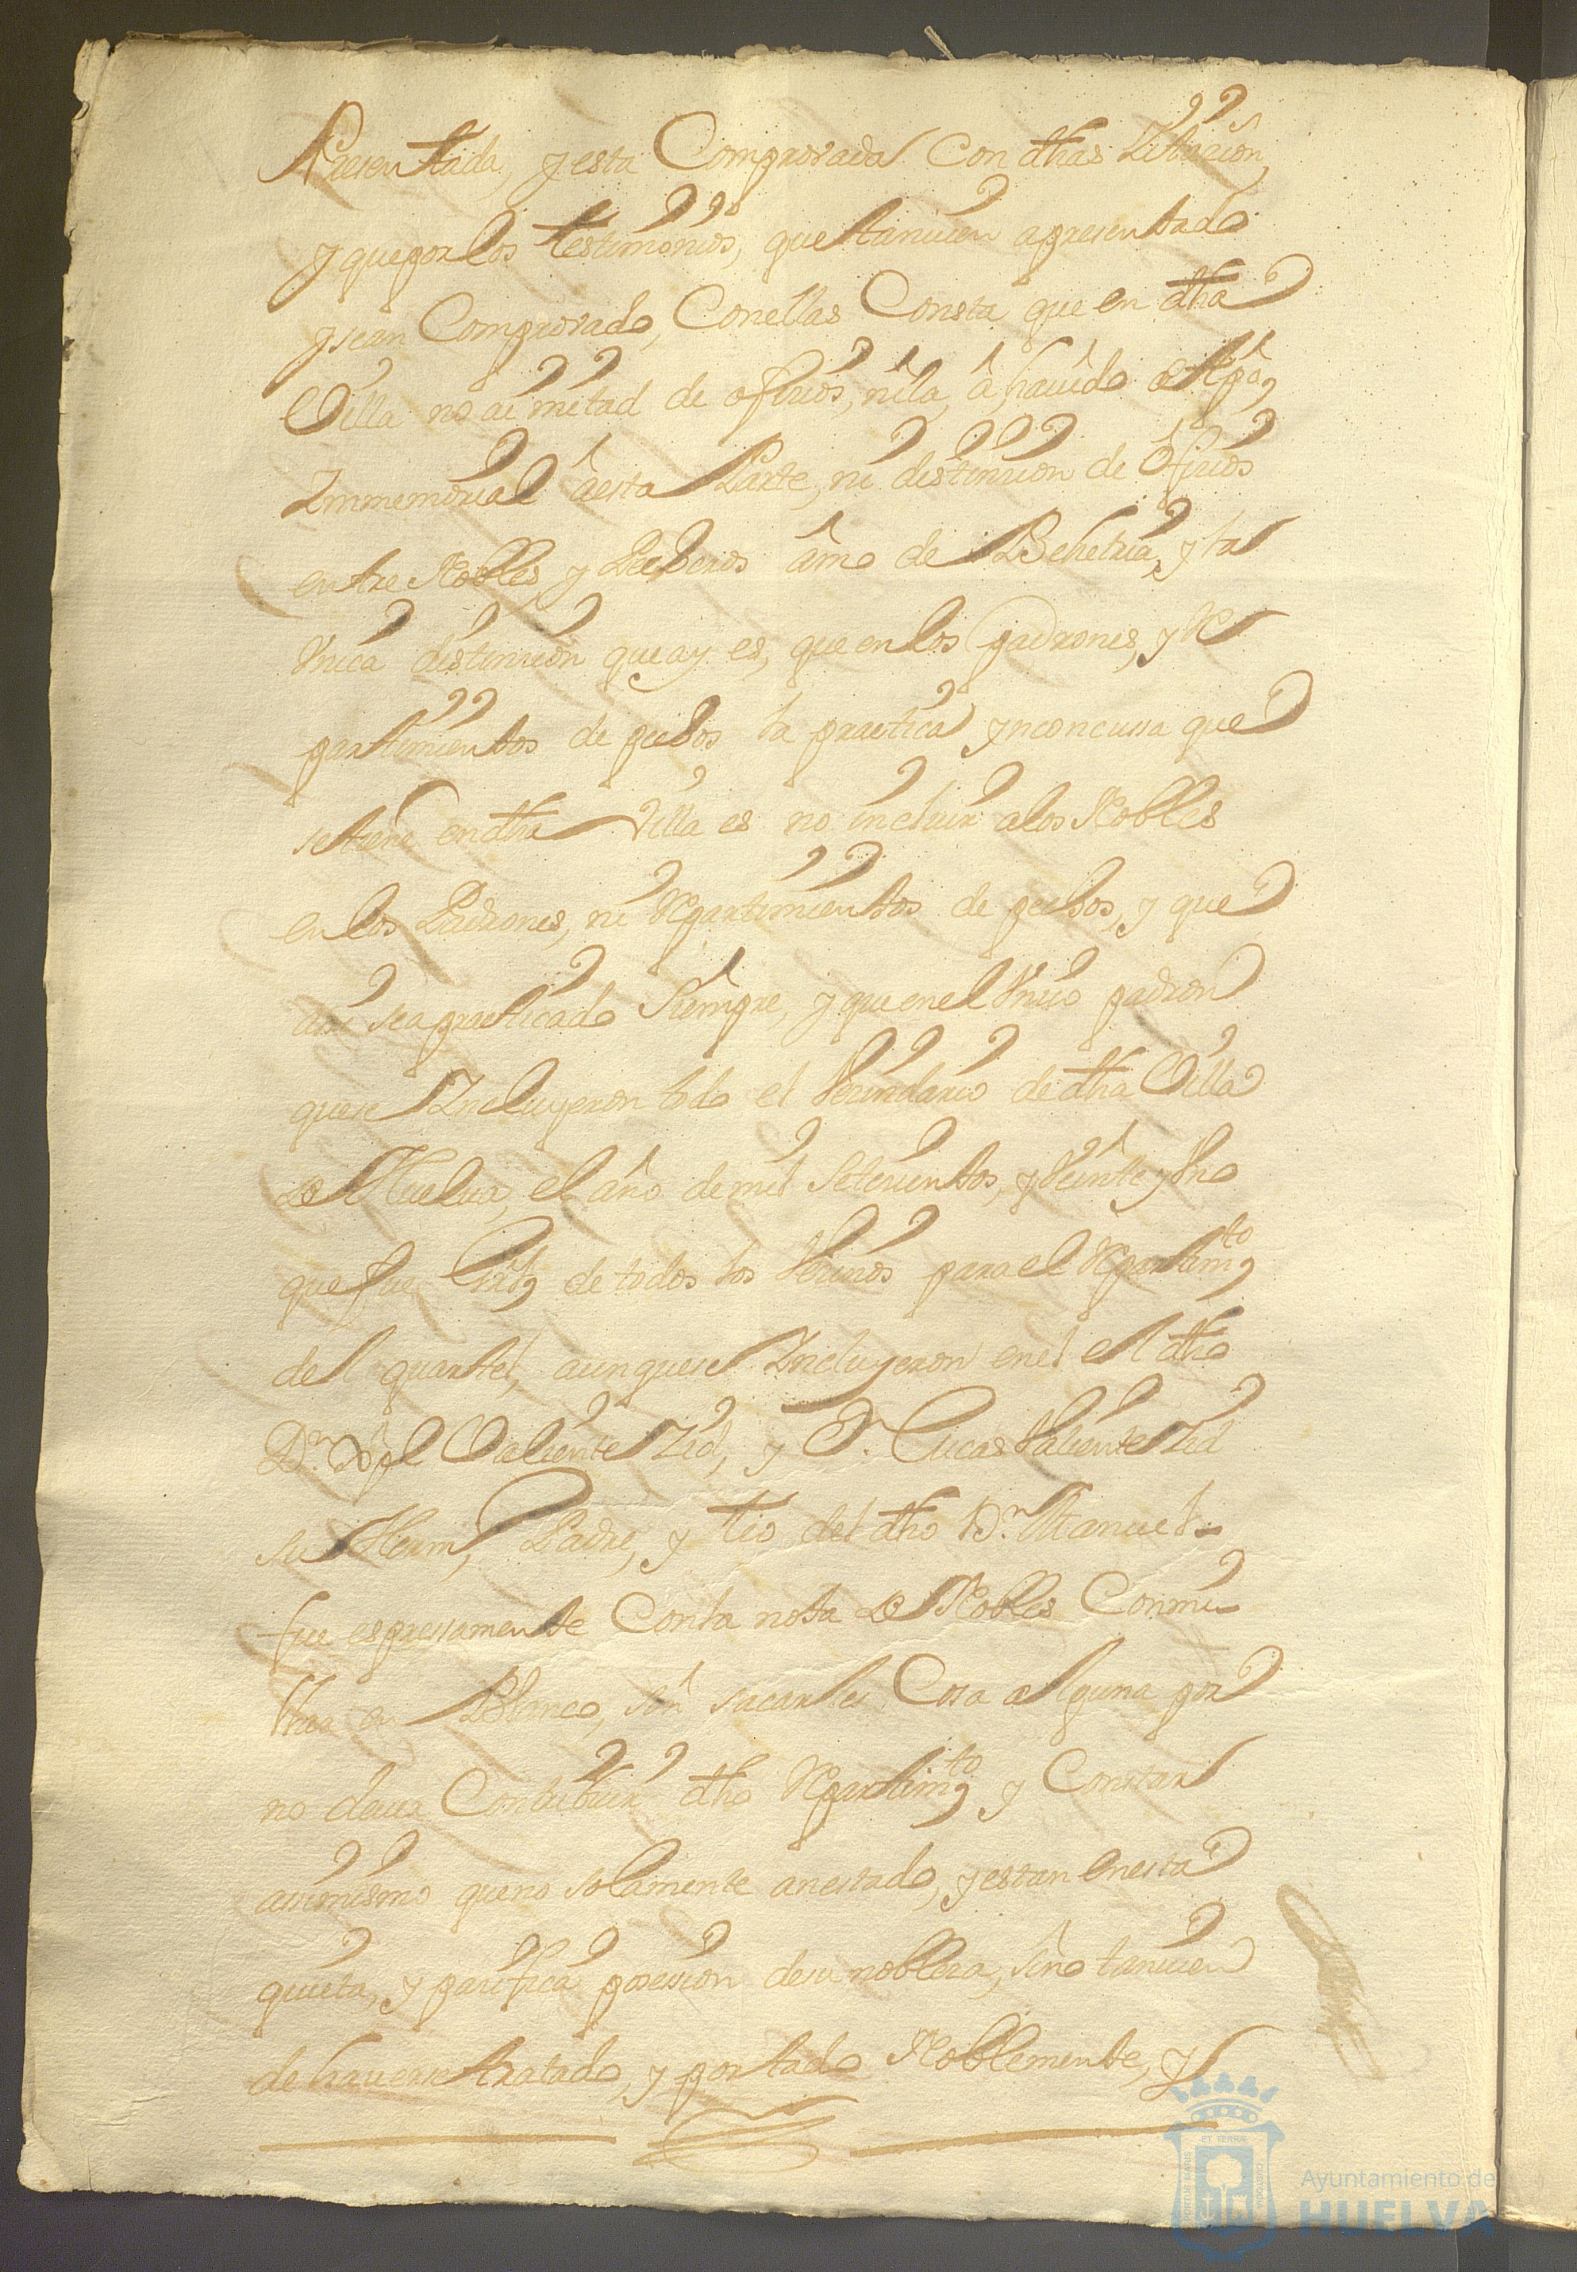 Presentada, y esta Comprovada Con dhas Zitacion,
y que por los testimonios, que tanvien a presentado
y sean Comprovado, Conellas Consta que en dha
Villa no ai mitad de ofizios, nila, â havido
Immemorial âesta Parte, ni distinzion de Ofizios
entre Nobles y Pecheros âmo de Behetria, y la
Vnica distinzion que ay es, que en los padrones, y Re
partimientos de pechos la practica ynconcussa que
se tiene en dha Villa es no incluir a los Nobles
en los Padrones, ni Repartimientos de pechos, y que
asi sea practicado siempre, y que en el Vnico padron
que se Incluyeron todo el Vezindario de dha Villa
de Huelva, el año de mil Setezientos, y Veinte y Vno
que fue de todos los Vezinos para el Repartimto
del quartel, aunque se Incluyeron en el el dho
Dn. Xptl Valiente Zid, y Dn. Lucas Valiente Zid
su Herm, Padre, y tio del dho Dn. Manuel
fue espressamente Conla nota de Nobles Conmi
llar en Blanco, sin sacarles Cosa alguna por
no dever Contribuir dho Repartimto y Constar
asimismo que no solamente an estado, y estan en esta
quieta, y pazifica posession de su nobleza, sino tanvien
de haverse tratado, y portado Noblemente, y
Ayuntamiento de
HUELVA